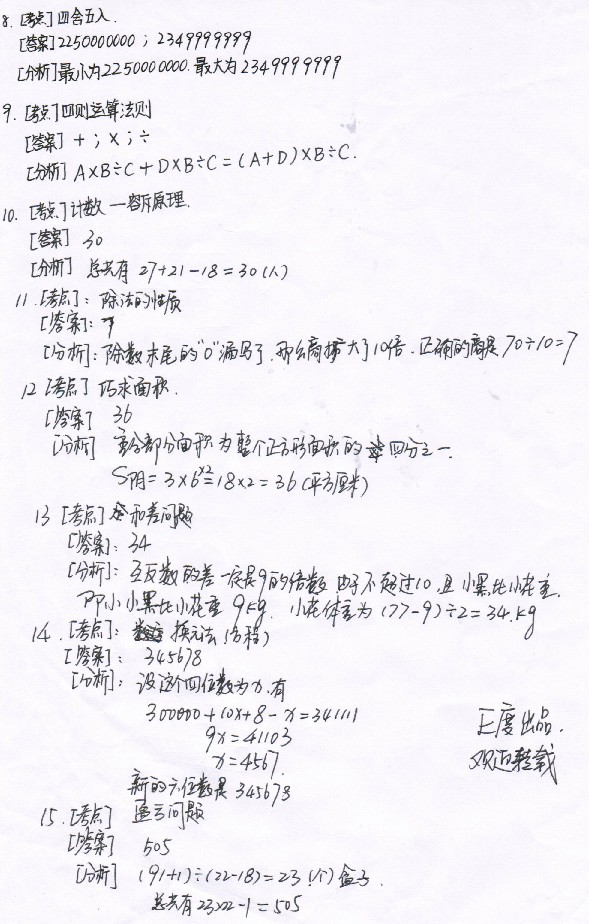 8. [考点] 四舍五入.
[答案] 2250000000 ; 2349999999
[分析] 最小为2250000000. 最大为2349999999
9. [考点] 四则运算法则
[答案] + ; × ; ÷
[分析] A×B÷C + D×B÷C = (A+D)×B÷C.
10. [考点] 计数 — 容斥原理.
[答案] 30
[分析] 总共有 27+21-18=30 (人)
11. [考点]: 除法的性质
[答案]: 7
[分析]: 除数末尾的"0"漏写了, 那么商扩大了10倍. 正确的商是 70÷10=7
12 [考点] 巧求面积.
[答案] 36
[分析] 重合部分面积为整个正方形面积的四分之一.
S阴= 3×6×2=18×2=36 (平方厘米)
13 [考点] 和差问题
[答案]: 34
[分析]: 互反数的差一定是9的倍数 由于不超过10, 且小黑比小花重.
即小黑比小花重 9kg. 小花体重为 (77-9)÷2=34.kg
14. [考点]: 换元法 (方程)
[答案]: 345678
[分析]: 设这个四位数为x, 有
300000+10x+8-x=341111
9x=41103
x=4567.
新的六位数是 345678
正度出品.
欢迎转载
15. [考点] 盈亏问题
[答案] 505
[分析] (91+1)÷(22-18)=23 (个) 盒子.
总共有 23×22-1=505